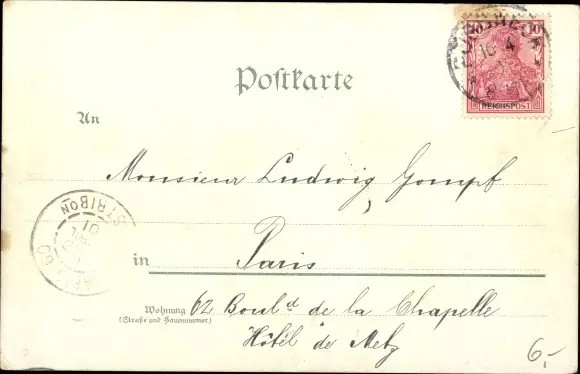 10 10
REICHSPOST
Postkarte
An
Monsieur Ludwig Gompf
in Paris
Wohnung 62 Boul^d de la Chapelle
(Straße und Hausnummer)
Hôtel de Metz
STRIBON
01
6,-